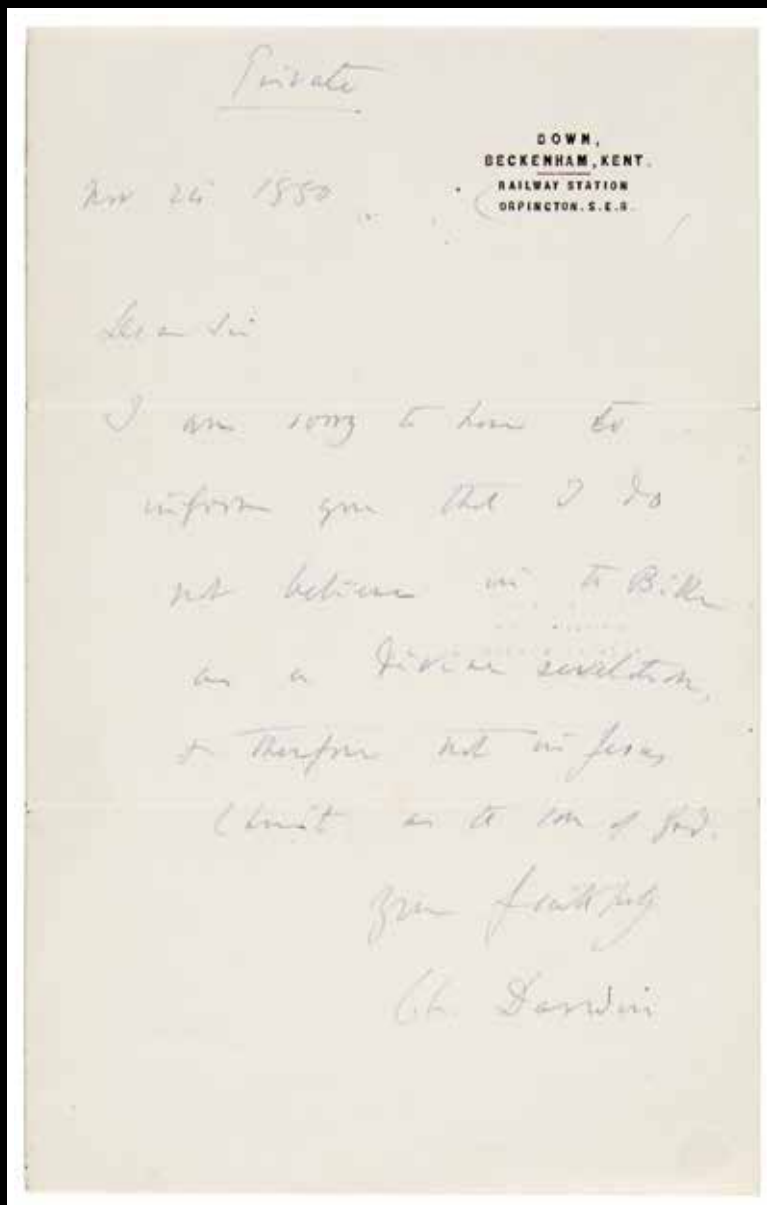 Private
DOWN,
BECKENHAM, KENT.
RAILWAY STATION
ORPINGTON. S.E.R.
Nov 24 1880
Dear Sir
I am sorry to have to
inform you that I do
not believe in the Bible
as a divine revelation,
& therefore not in Jesus
Christ as the son of God.
Yours faithfully
Ch. Darwin